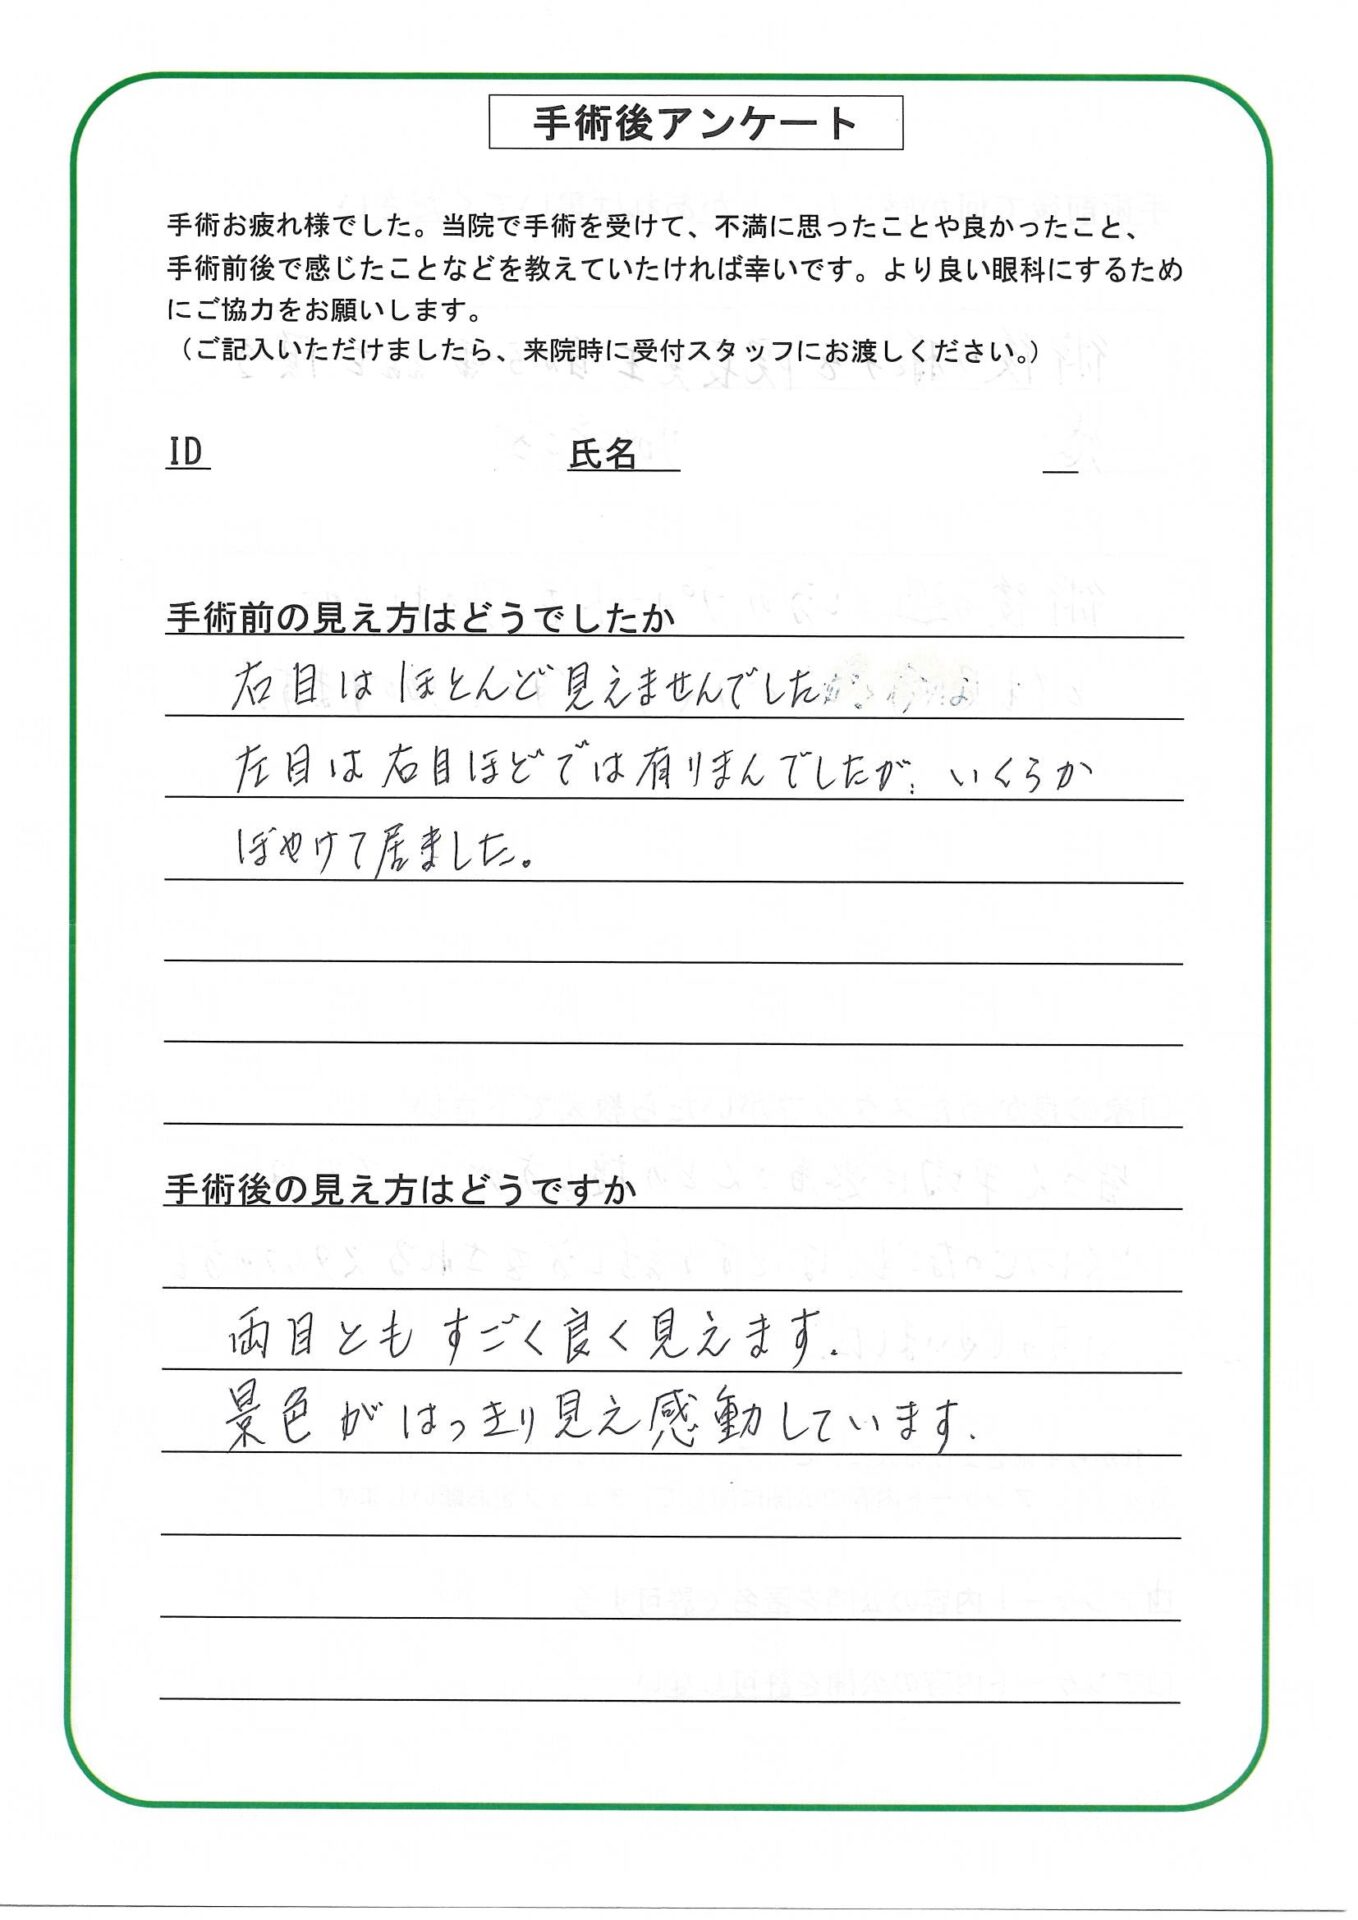 手術後アンケート
手術お疲れ様でした。当院で手術を受けて、不満に思ったことや良かったこと、
手術前後で感じたことなどを教えていたければ幸いです。より良い眼科にするため
にご協力をお願いします。
（ご記入いただけましたら、来院時に受付スタッフにお渡しください。）
ID 氏名
手術前の見え方はどうでしたか
右目はほとんど見えませんでした
左目は右目ほどでは有りまんでしたが、いくらか
ぼやけて居ました。
手術後の見え方はどうですか
両目ともすごく良く見えます.
景色がはっきり見え感動しています.